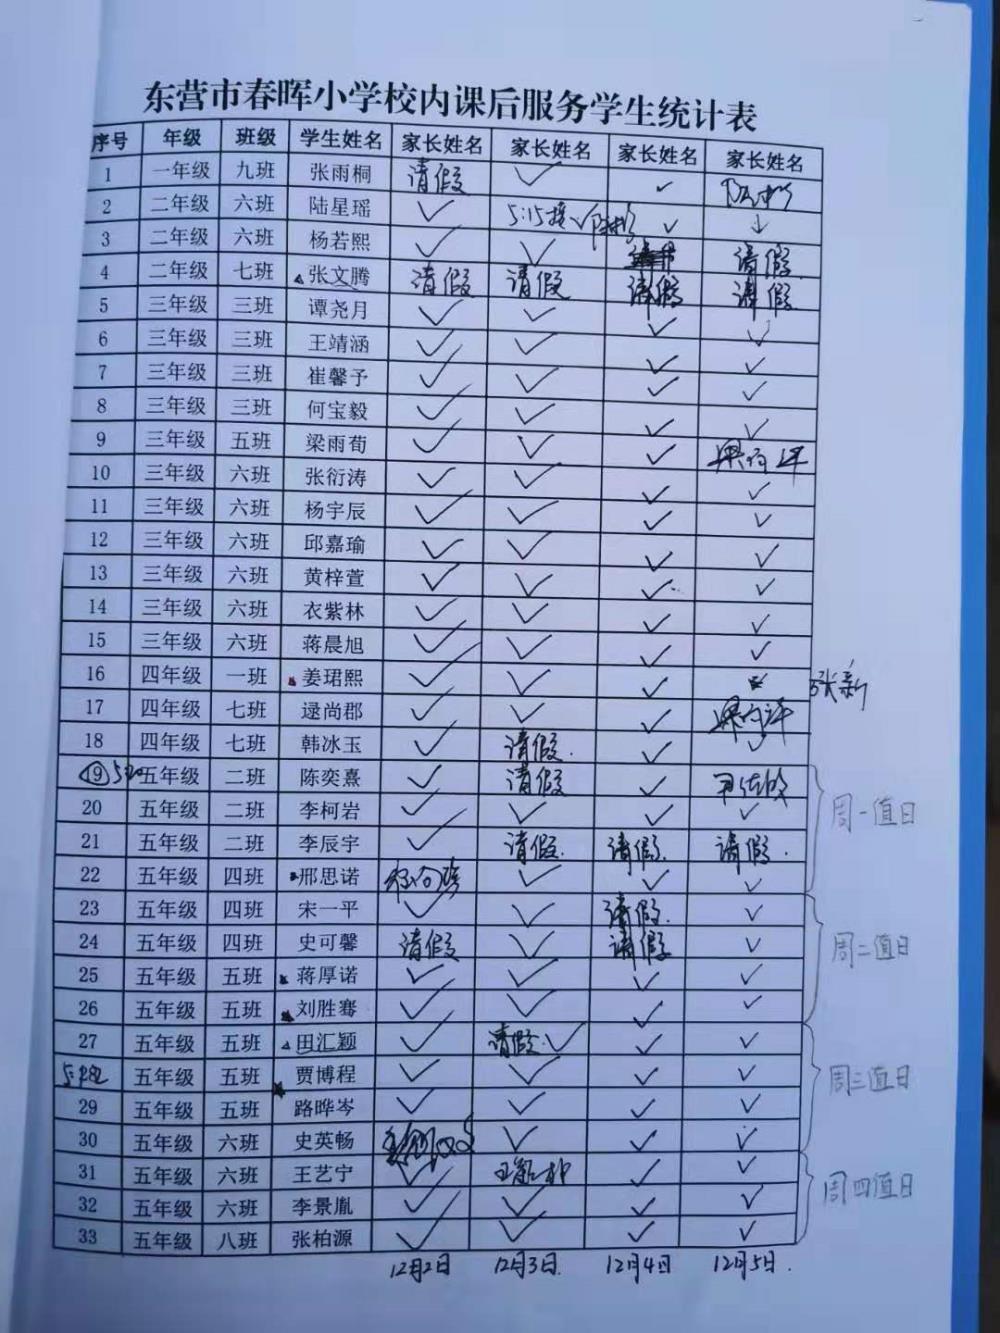 东营市春晖小学校内课后服务学生统计表
序号 年级 班级 学生姓名 家长姓名 家长姓名 家长姓名 家长姓名
1 一年级 九班 张雨桐 请假 ✓ ✓
2 二年级 六班 陆星瑶 ✓ 5:15接 ✓ ✓
3 二年级 六班 杨若熙 ✓ ✓ 请假
4 二年级 七班 张文腾 请假 请假 请假 请假
5 三年级 三班 谭尧月 ✓ ✓ ✓ ✓
6 三年级 三班 王靖涵 ✓ ✓ ✓ ✓
7 三年级 三班 崔馨予 ✓ ✓ ✓ ✓
8 三年级 三班 何宝毅 ✓ ✓ ✓ ✓
9 三年级 五班 梁雨荀 ✓ ✓ ✓
10 三年级 六班 张衍涛 ✓ ✓ ✓ ✓
11 三年级 六班 杨宇辰 ✓ ✓ ✓ ✓
12 三年级 六班 邱嘉瑜 ✓ ✓ ✓ ✓
13 三年级 六班 黄梓萱 ✓ ✓ ✓ ✓
14 三年级 六班 衣紫林 ✓ ✓ ✓ ✓
15 三年级 六班 蒋晨旭 ✓ ✓ ✓ ✓
16 四年级 一班 姜珺熙 ✓ ✓ ✓ 张新
17 四年级 七班 逯尚郡 ✓ ✓ ✓
18 四年级 七班 韩冰玉 ✓ 请假. ✓ ✓
19 五年级 二班 陈奕熹 ✓ 请假 ✓
20 五年级 二班 李柯岩 ✓ ✓ ✓ ✓ 周一值日
21 五年级 二班 李辰宇 ✓ 请假. 请假. 请假.
22 五年级 四班 邢思诺 ✓ ✓ ✓
23 五年级 四班 宋一平 ✓ ✓ 请假. ✓
24 五年级 四班 史可馨 请假 ✓ 请假 ✓ 周二值日
25 五年级 五班 蒋厚诺 ✓ ✓ ✓ ✓
26 五年级 五班 刘胜骞 ✓ ✓ ✓ ✓
27 五年级 五班 田汇颖 ✓ 请假. ✓ ✓ ✓
五年级 五班 贾博程 ✓ ✓ ✓ ✓ 周三值日
29 五年级 五班 路晔岑 ✓ ✓ ✓ ✓
30 五年级 六班 史英畅 ✓ ✓ ✓
31 五年级 六班 王艺宁 ✓ ✓ ✓ 周四值日
32 五年级 六班 李景胤 ✓ ✓ ✓ ✓
33 五年级 八班 张柏源 ✓ ✓ ✓ ✓
12月2日 12月3日. 12月4日 12月5日.